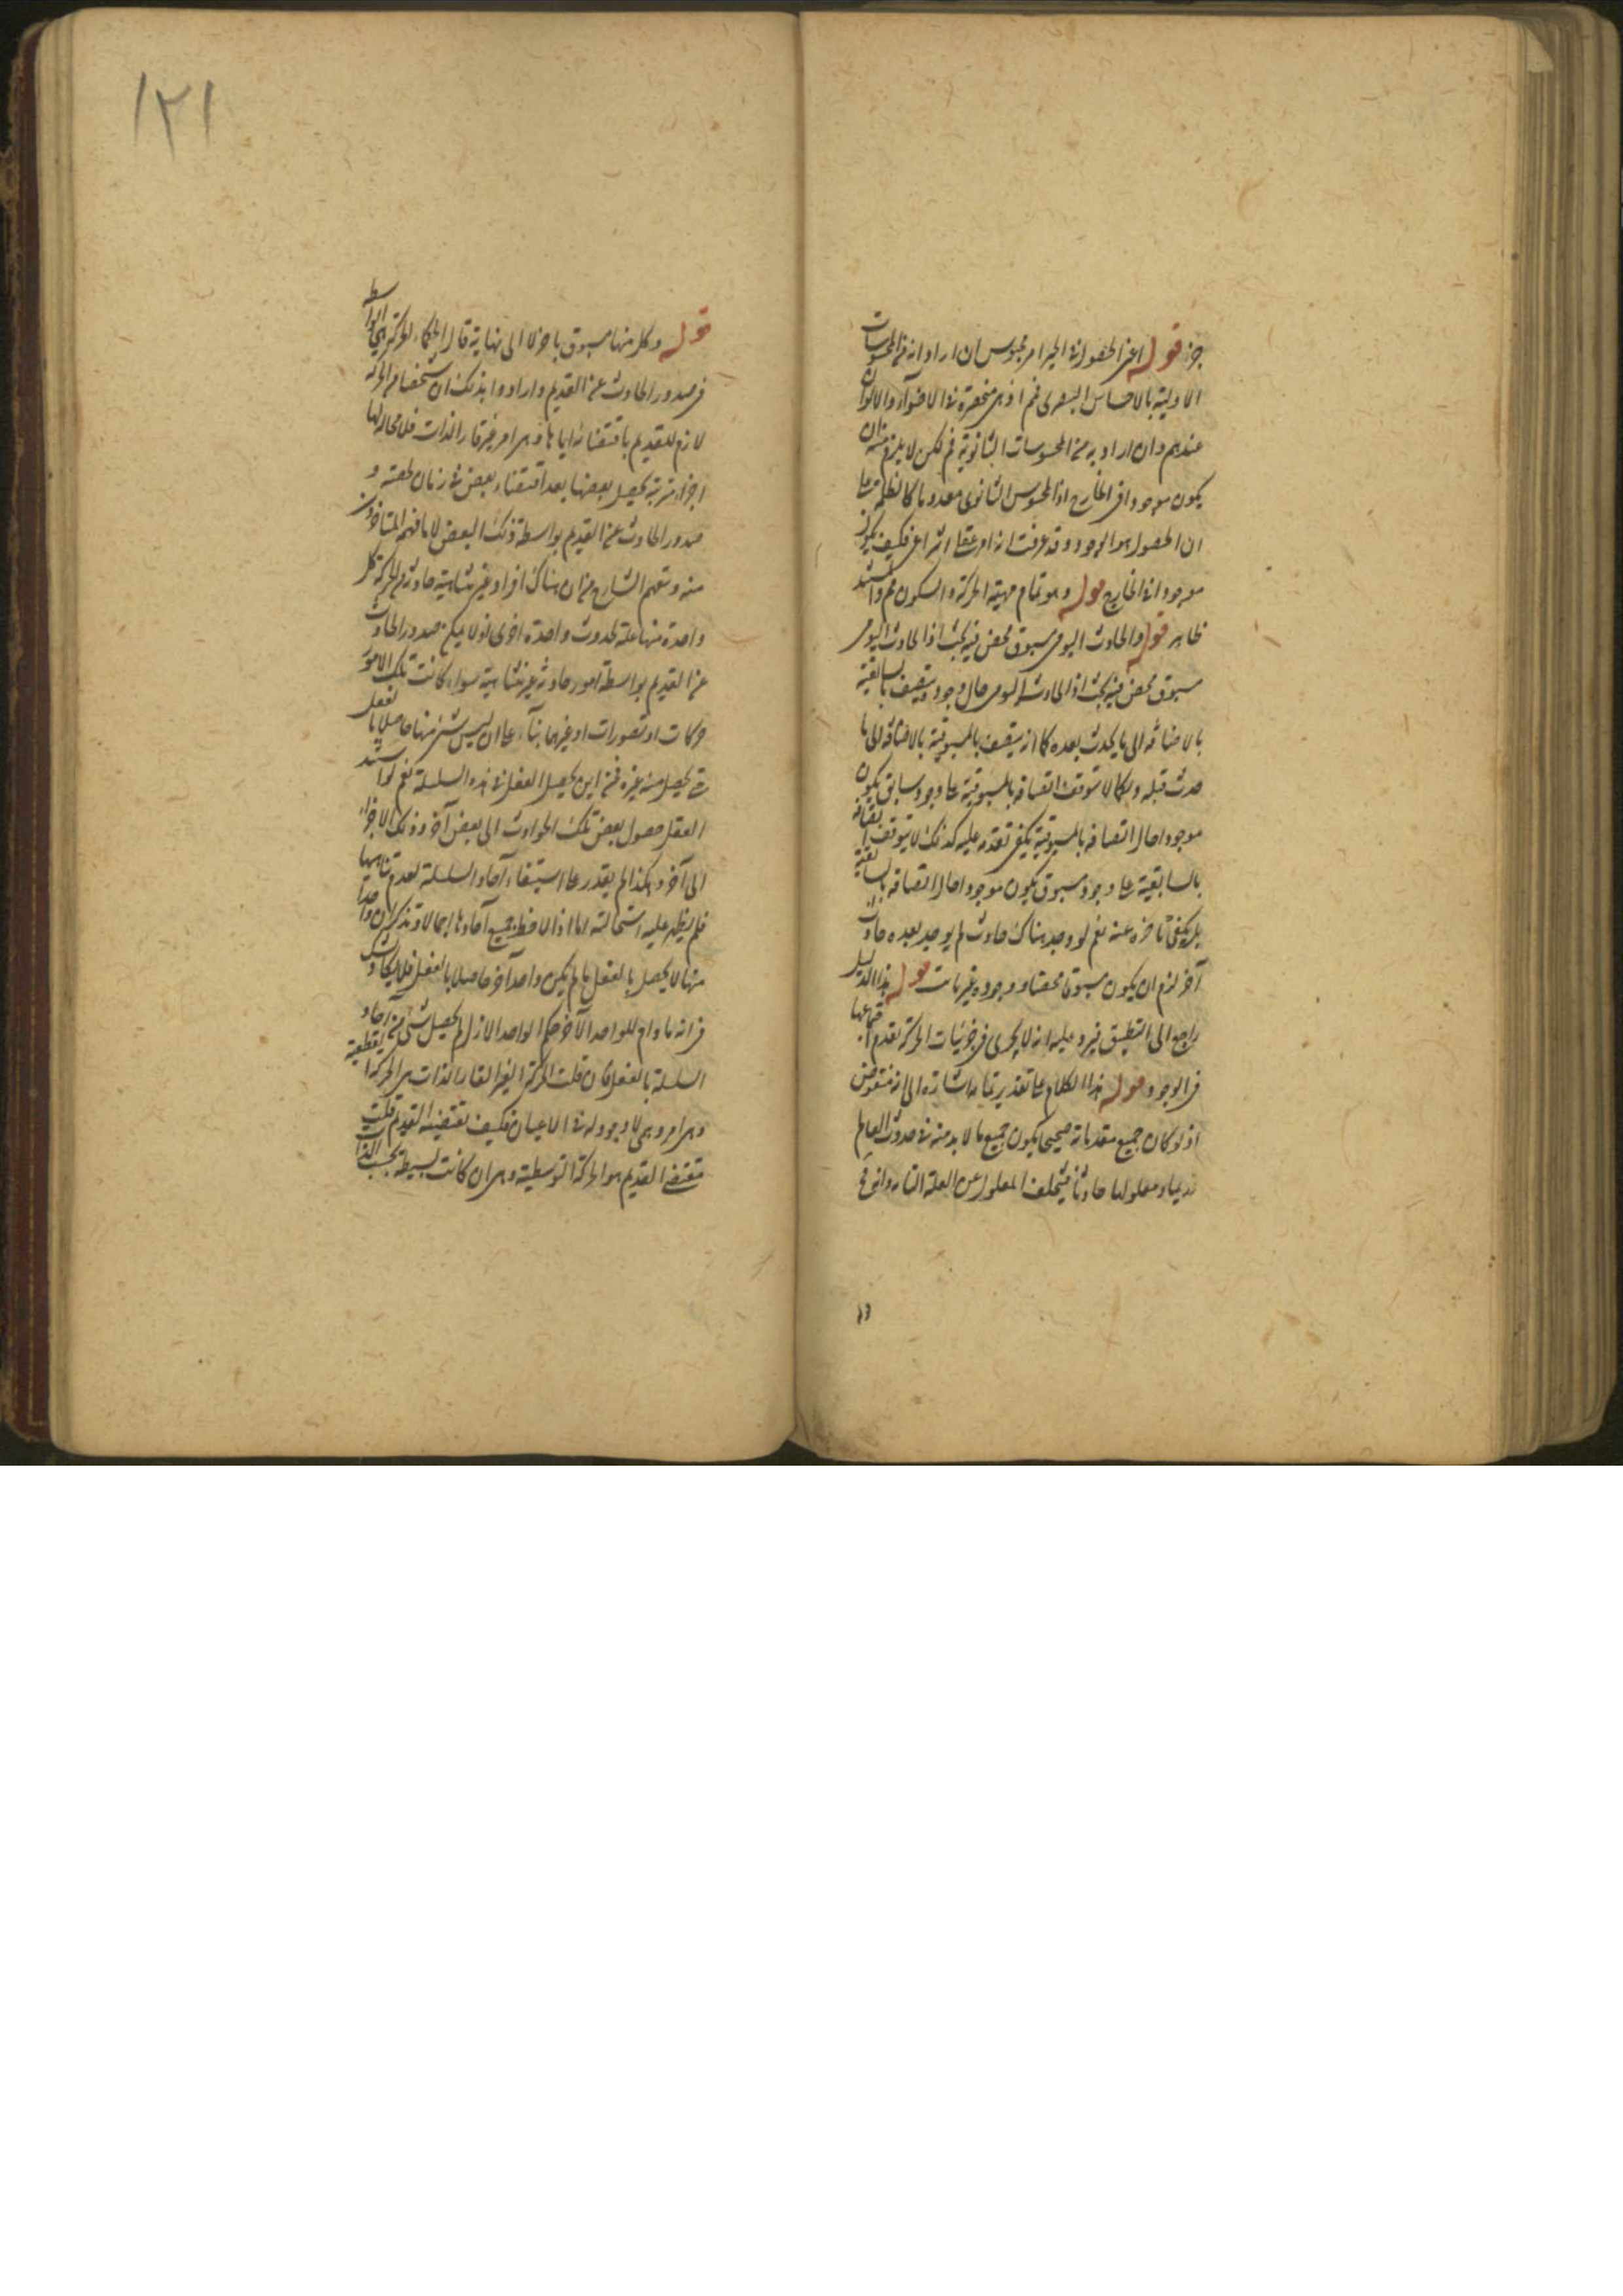 جزء قوله اعنى الحصول فى الحيز امر محسوس ان اراد انه من المحسوسات
الاولية بالاحساس البصرى فم اذ هى منحصرة فى الاضواء والالوان
عندهم وان اراد به من المحسوسات الثانوية فم لكن لا يلزم منه ان
يكون موجودا فى الخارج اذ المحسوس الثانوى معدوما كالظلمة على
ان الحصول هو الوجود وقد عرفت انه امر عقلى انتزاعى فكيف يكون
موجودا فى الخارج قوله وهو تمام مهية الحركة والسكون مم والسند
ظاهر قوله والحادث اليومى مسبوق محض فيه بحث اذ الحادث اليومى
مسبوق محض فيه بحث اذ الحادث اليومى حال وجوده يتصف بالسابقية
بالاضافة الى ما يحدث بعده كما انه يتصف بالمسبوقية بالاضافة الى ما
حدث قبله وكما لا يتوقف اتصافه بالمسبوقية على وجود سابق يكون
موجودا حال اتصافه بالمسبوقية بل يكفى تقدمه عليه كذلك لا يتوقف اتصافه
بالسابقية على وجود مسبوق يكون موجودا حال اتصافه بالسابقية
بل يكفى تأخره عنه نعم لو وجد هناك حادث لم يوجد بعده حادث
آخر لزم ان يكون مسبوقا محضا ووجوده غير ثابت قوله هذا الدليل
راجع الى التطبيق يرد عليه انه لا يجرى فى جزئيات الحركة لعدم اجتماعها
فى الوجود قوله هذا الكلام على تقدير تمامه اشارة الى انه منقوض
اذ لو كان جميع مقدماته صحيحا يكون جميع ما لا بد منه فى حدوث العالم
قديما ومعلولها حادثا فيتخلف المعلول عن العلة التامة وانه مح
قوله وكل منها مسبوق بآخر لا الى نهاية قال الحكماء الحركة هى الواسطة
فى صدور الحادث عن القديم وارادوا بذلك ان شخصا من الحركة
لازم للقديم باقتضائه اياها وهى امر غير قار الذات فلا محالة لها
اجزاء مترتبة يحصل بعضها بعد اقتضاء بعض فى زمان لحقته و
صدور الحادث عن القديم بواسطة ذلك البعض لا ما فهمه المتأخرون
منه وتبعهم الشارح من ان هناك افراد غير متناهية حادثة من الحركة كل
واحدة منها علة لحدوث واحدة اخرى اذ لا يمكن صدور الحادث
عن القديم بواسطة امور حادثة غير متناهية سواء كانت تلك الامور
حركات او تصورات او غيرهما بناء على ان ليس شئ منها حاصلا بالفعل
حتى يحصل منه غيره فمن اين يحصل الفعل فى هذه السلسلة نعم لو اسند
العقل حصول بعض تلك الحوادث الى بعض آخر وذلك الآخر
الى آخر وهكذا لم يقدر على استيفاء آحاد السلسلة لعدم تناهيها
فلم يظهر عليه استحالته اما اذا لاحظ جميع آحادها اجمالا وتذكر ان واحدا
منها لا يحصل بالفعل ما لم يكن واحد آخر حاصلا بالفعل فلا يكاد يشك
فى انه ما دام للواحد الآخر حكم الواحد الاول لم يحصل شئ من آحاد
السلسلة بالفعل فان قلت الحركة الغير القار الذات هى الحركة القطعية
وهى امر وهمى لا وجود له فى الاعيان فكيف تقتضيه القديم قلت
مقتضى القديم هو الحركة التوسطية وهى ان كانت بسيطة بحسب الذات
١٢١